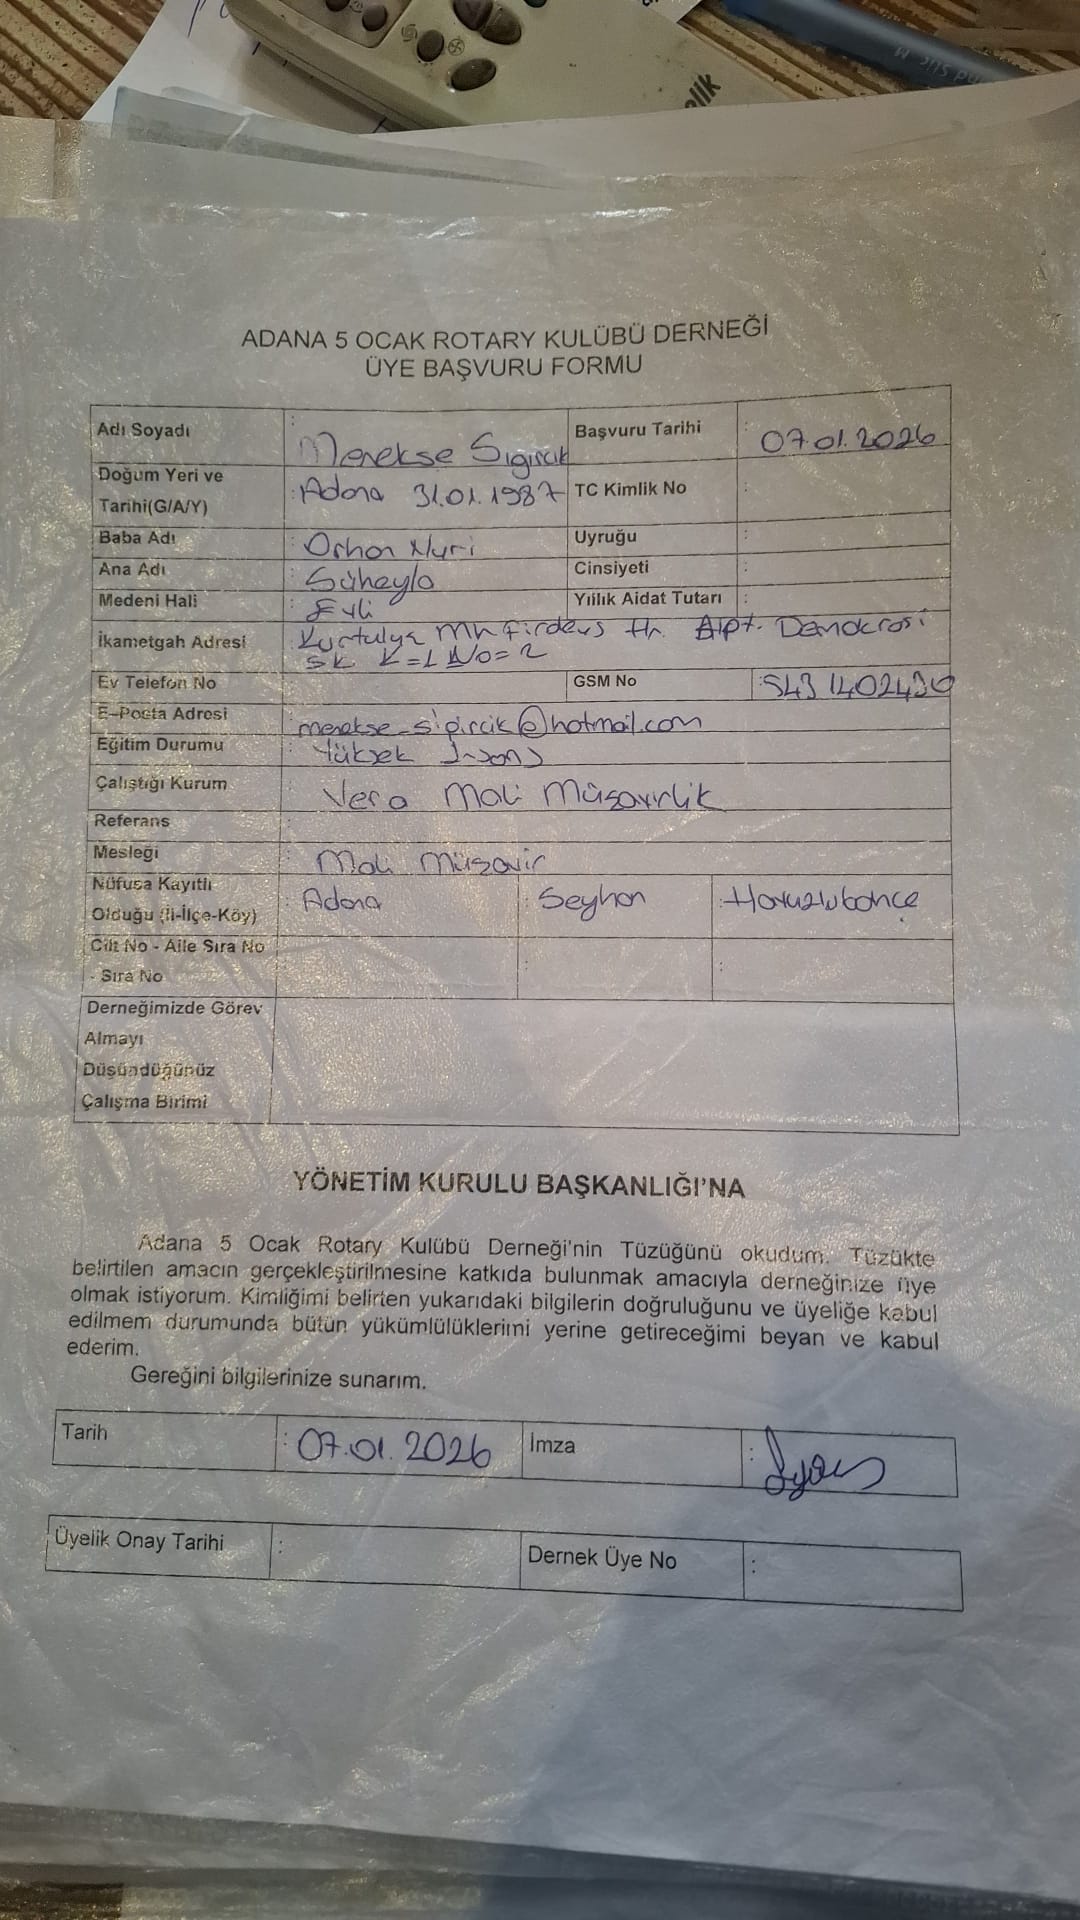 elik
ADANA 5 OCAK ROTARY KULÜBÜ DERNEĞİ
ÜYE BAŞVURU FORMU
Adı Soyadı : Menekşe Sığırcık Başvuru Tarihi : 07.01.2026
Doğum Yeri ve Tarihi(G/A/Y) : Adana 31.01.1987 TC Kimlik No :
Baba Adı : Orhan Nuri Uyruğu :
Ana Adı : Süheyla Cinsiyeti :
Medeni Hali : Evli Yıllık Aidat Tutarı :
İkametgah Adresi : Kurtuluş mh Firdevs Hn. Apt. Demokrasi
sk K=1 No=2
Ev Telefon No GSM No : 543 1402430
E-Posta Adresi : menekse_sigircik@hotmail.com
Eğitim Durumu : Yüksek Lisans
Çalıştığı Kurum : Vera Mali Müşavirlik
Referans :
Mesleği : Mali Müşavir
Nüfusa Kayıtlı Olduğu (İl-İlçe-Köy) : Adana : Seyhan : Havuzlubahçe
Cilt No - Aile Sıra No - Sıra No : : :
Derneğimizde Görev
Almayı
Düşündüğünüz
Çalışma Birimi
YÖNETİM KURULU BAŞKANLIĞI'NA
Adana 5 Ocak Rotary Kulübü Derneği'nin Tüzüğünü okudum. Tüzükte
belirtilen amacın gerçekleştirilmesine katkıda bulunmak amacıyla derneğinize üye
olmak istiyorum. Kimliğimi belirten yukarıdaki bilgilerin doğruluğunu ve üyeliğe kabul
edilmem durumunda bütün yükümlülüklerimi yerine getireceğimi beyan ve kabul
ederim.
Gereğini bilgilerinize sunarım.
Tarih : 07.01.2026 İmza :
Üyelik Onay Tarihi : Dernek Üye No :